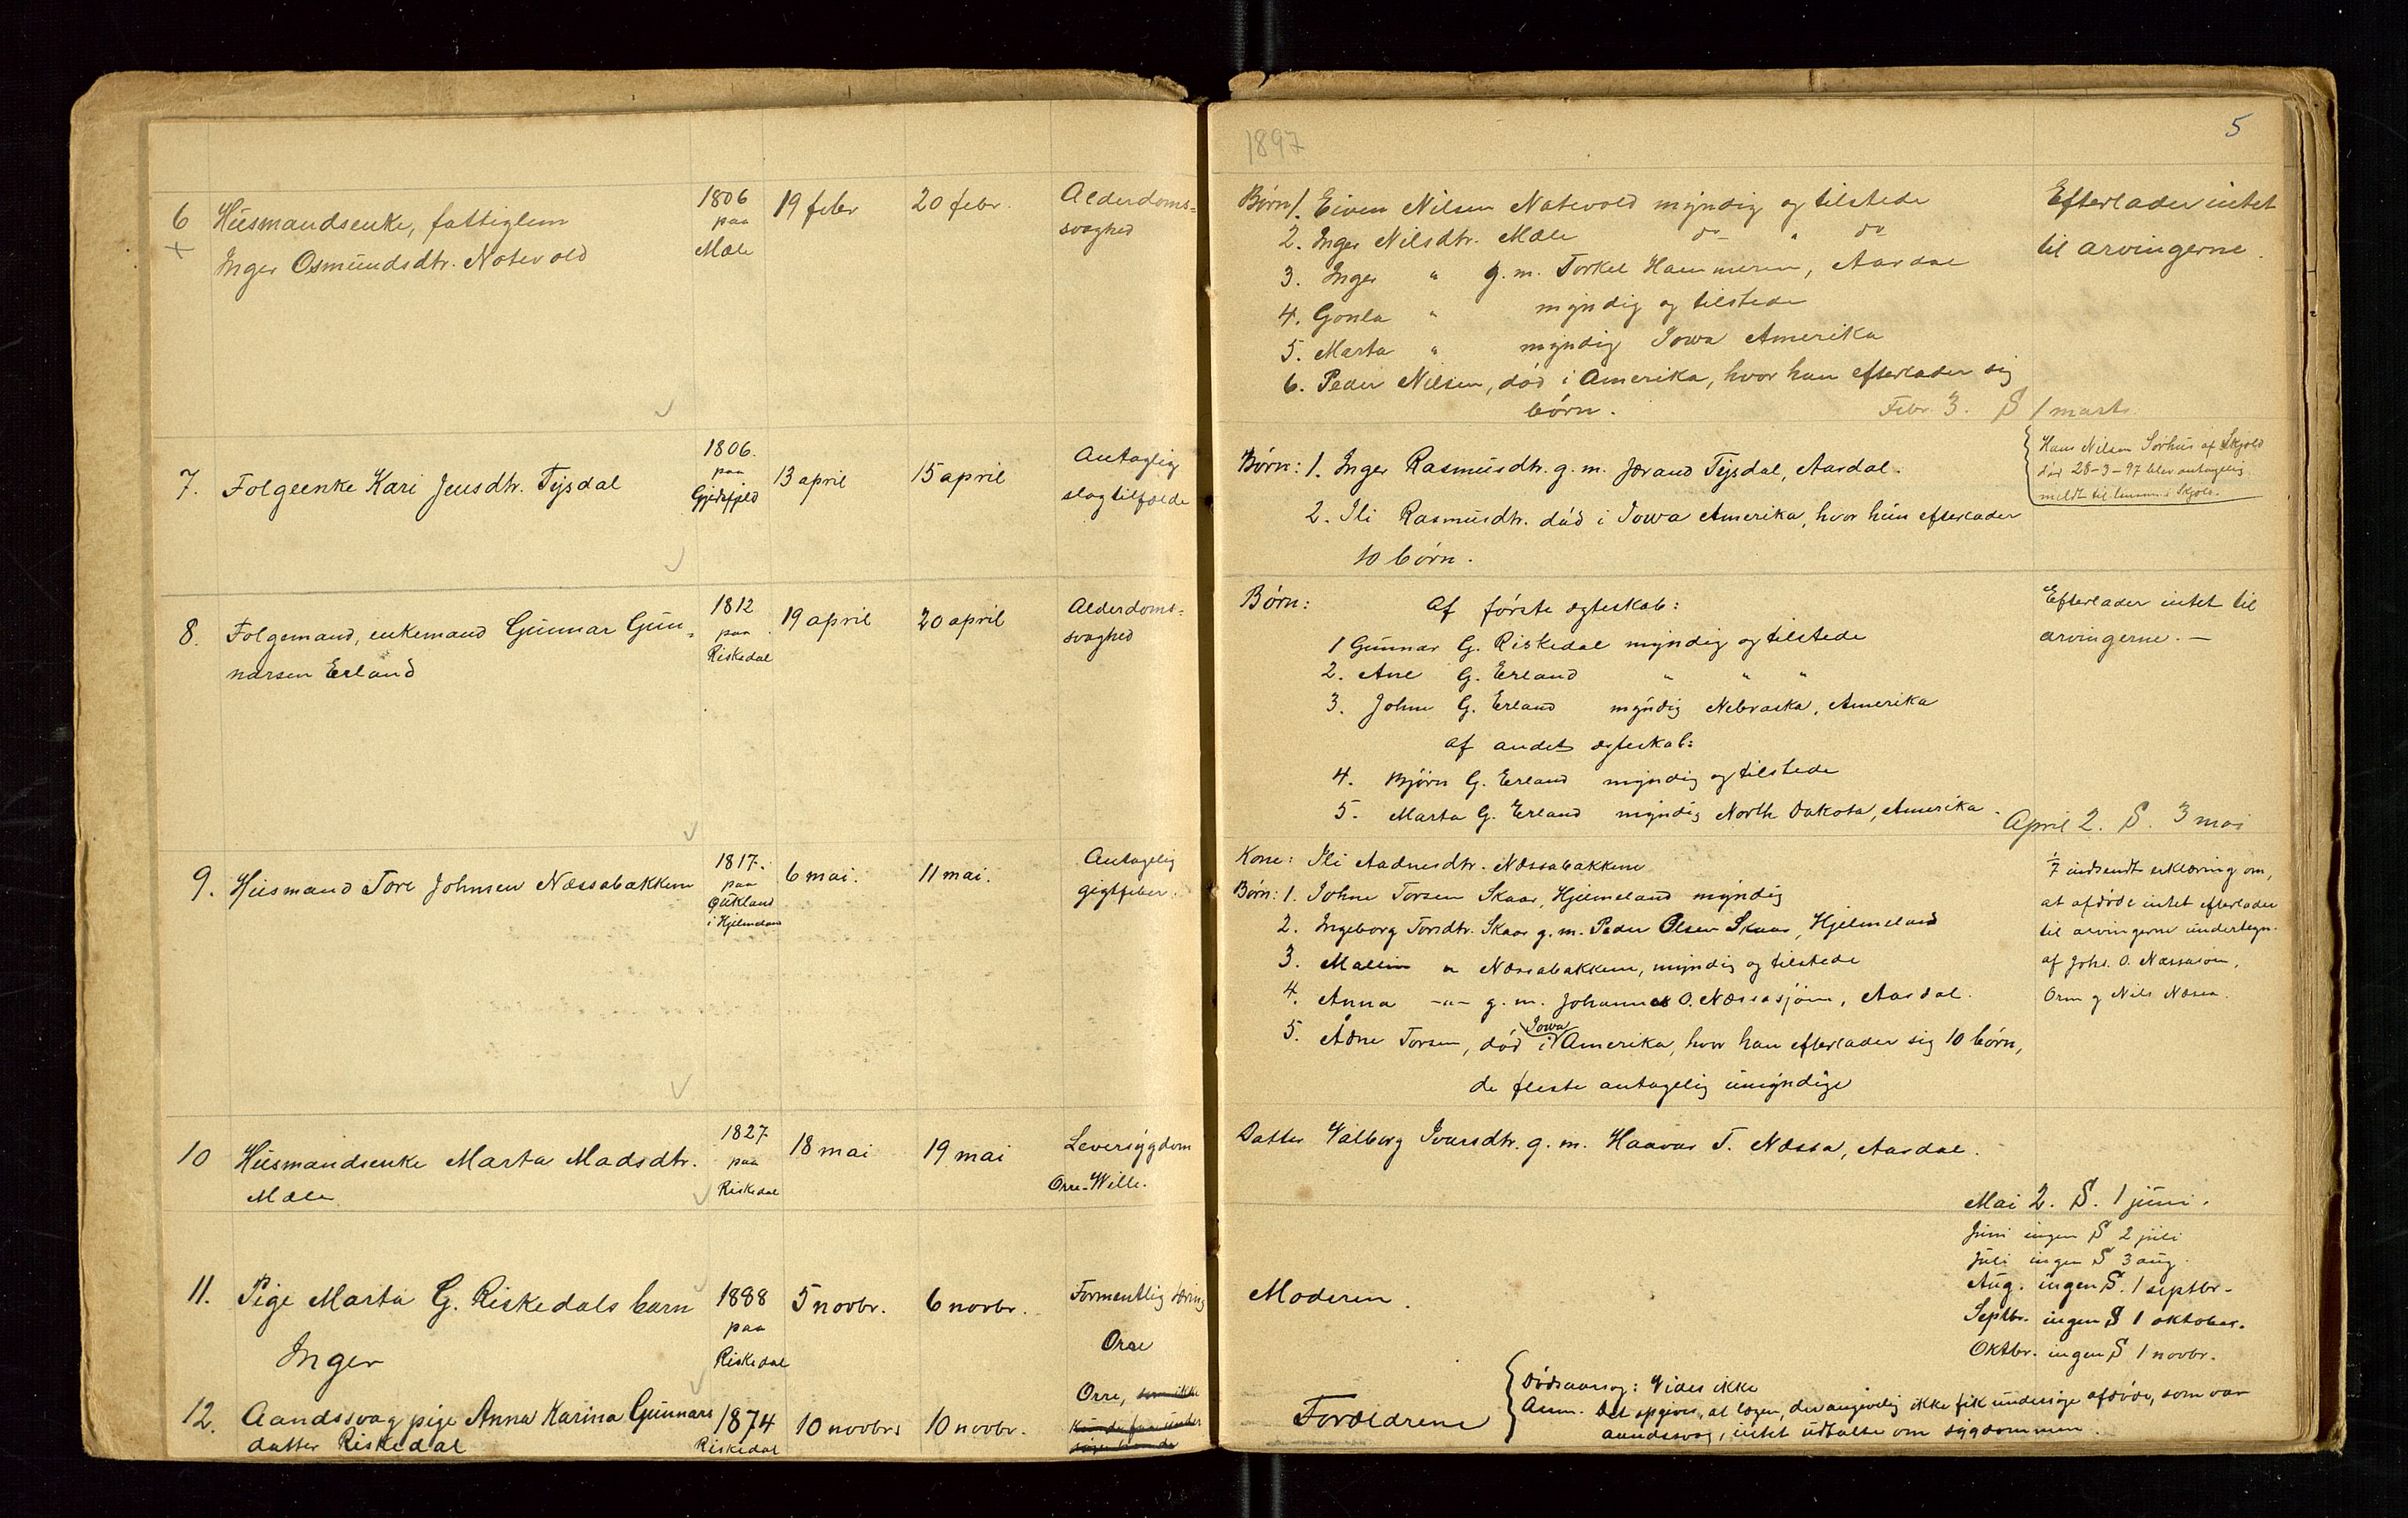 1897
5
6 Húsmandsenke, fattiglem
Inger Osmundsdtr. Notevold
1806
paa
Mæle
19 febr
20 febr.
Alderdoms=
svaghed
Børn 1. Eiven Nilsen Notevold myndig og tilstede
2. Inger Nilsdtr. Mæle do " do
3. Inger " g. m. Torkel Hammeren, Aardal
4. Gonla " myndig og tilstede
5. Marta " myndig Iowa Amerika
6. Peder Nilsen, død i Amerika, hvor han efterlader sig
børn.
Efterlader intet
til arvingerne.
Febr. 3. S 1 marts
7. Folgeenke Kari Jensdtr. Tysdal
1806.
paa
13 april
15 april
Antaglig
slagtilfælde
Børn: 1. Inger Rasmusdtr. g. m. Jørand Tysdal, Aardal.
2. Ili Rasmusdtr. død i Iowa Amerika, hvor hun efterlader
10 børn.
Hans Nilsen Sørhus af Skjold
død 28-3-97 blev antagelig
meldt til lensm. i Skjold.
8. Folgemand, enkemand Gunnar Gun=
narsen Erland
1812
paa
Riskedal
19 april
20 april
Alderdoms=
svaghed
Børn: af første ægteskab:
1 Gunnar G. Riskedal myndig og tilstede
2. Ane G. Erland " " "
3. Johne G. Erland myndig Nebraska, Amerika
af andet ægteskab:
4. Bjørn G. Erland myndig og tilstede
5. Marta G. Erland myndig North Dakota, Amerika.
Efterlader intet til
arvingerne. —
April 2. S. 3 mai
9. Husmand Tore Johnsen Næssabakken
1817.
paa
i Hjelmeland
6 mai.
11 mai.
Antagelig
gigtfeber.
Kone: Ili Aadnesdtr. Næssabakkene
Børn: 1. Johne Torsen Skaar, Hjelmeland myndig
2. Ingeborg Torsdtr. Skaar g. m. Peder Olsen Skaar, Hjelmeland
3. Mallin " Næssabakkene, myndig og tilstede
4. Anna -"- g. m. Johannes O. Næssasjøen, Aardal.
5. Adne Torsen, død i Iowa Amerika, hvor han efterlader sig 10 børn,
de fleste antagelig umyndige
1/7 indsendt erklæring om,
at afdøde intet efterlader
til arvingerne undertegn.
af Johs. O. Næssasøen,
Orm og Nils Næssa.
10 Husmandsenke Marta Madsdtr.
Mæle
1827
paa
Riskedal
18 mai
19 mai
Leversygdom
Orre-Wille.
Datter Valborg Ivarsdtr. g. m. Haavar T. Næssa, Aardal.
Mai 2. S. 1 juni.
Juni ingen S 2 juli
Juli ingen S 3 aug.
Aug. ingen S. 1 septbr.
Septbr. ingen S 1 oktober.
Oktbr. ingen S 1 novbr.
11. Pige Marta G. Riskedals barn
Inger
1888
paa
Riskedal
5 novbr.
6 novbr.
Formentlig tæring
Orre
Moderen.
12. Aandssvag pige Anna Karina Gunnars
datter Riskedal
1874
Riskedal
10 novbr
10 novbr.
Orre, som ikke
kunde faa under
søge hende
Forældrene
Dødsaarsag: Vides ikke
Anm. Det opgives, at lægen, der angivelig ikke fik undersøge afdøde, som var
aandssvag, intet udtalte om sygdommen.